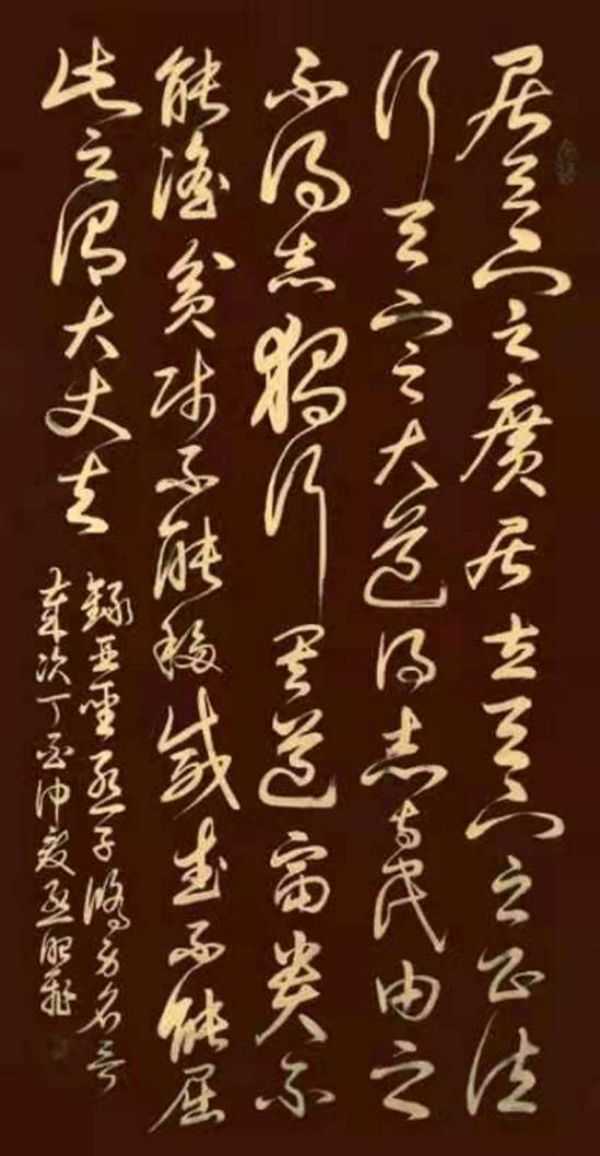 居天下之廣居立天下之正位
行天下之大道得志與民由之
不得志獨行其道富貴不
能淫貧賤不能移威武不能屈
此之謂大丈夫
錄亞聖孟子名言
歲次丁酉仲夏孟